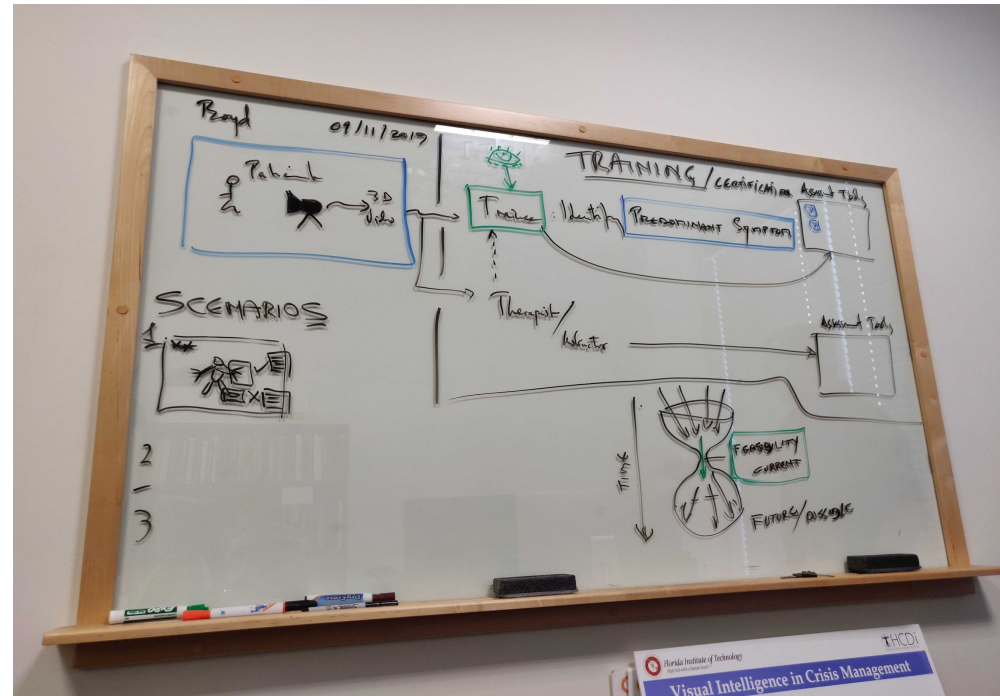 Boyd
09/11/2019
Patient
3D
Video
TRAINING/CERTIFICATION
Trainee: Identify
PREDOMINANT SYMPTOM
Assessment Tools
Therapist/
Instructor
Assessment Tools
SCENARIOS
1
2
3
TIME
FEASIBILITY
CURRENT
FUTURE/POSSIBLE
EXPO
Florida Institute of Technology
HCDi
Visual Intelligence in Crisis Management